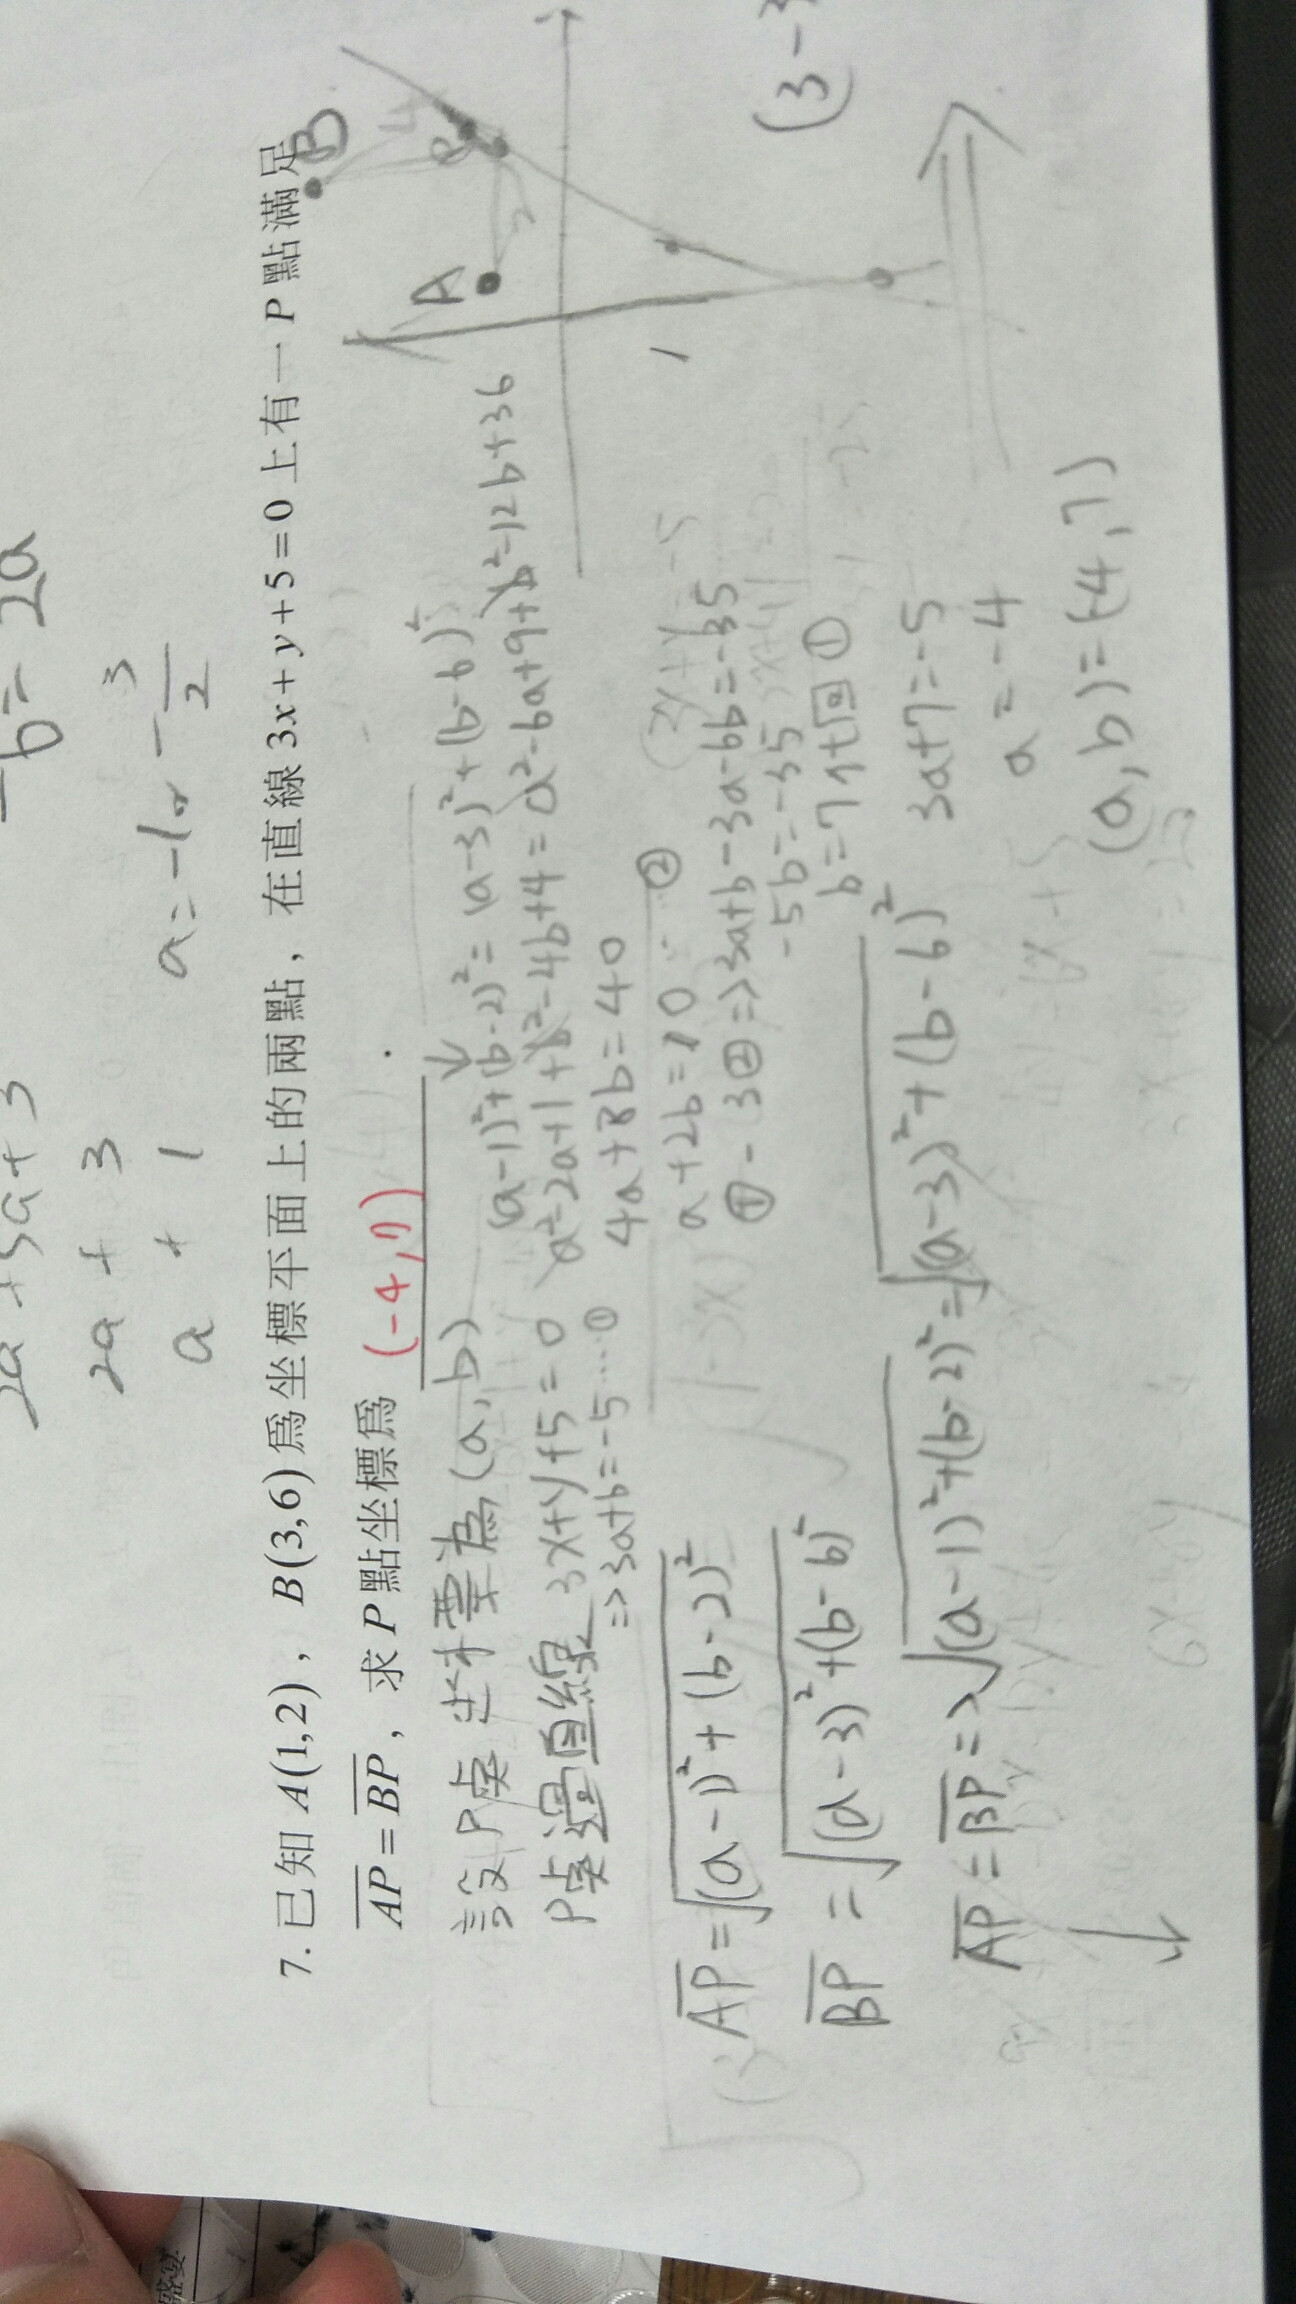 b=2a
2a + 3
a + 1
a=-1or -3/2
7. 已知 A(1,2), B(3,6)爲坐標平面上的兩點, 在直線 3x+y+5=0 上有一 P 點滿足
AP=BP, 求 P 點坐標爲 (-4,7) .
設P点坐標為(a,b)
P点過直線 3x+y+5=0
=>3a+b=-5....①
AP=√(a-1)²+(b-2)²
BP=√(a-3)²+(b-6)²
AP=BP=>√(a-1)²+(b-2)²=√(a-3)²+(b-6)²
(a-1)²+(b-2)²=(a-3)²+(b-6)²
a²-2a+1+b²-4b+4=a²-6a+9+b²-12b+36
4a+8b=40
a+2b=10...②
①-3②=>3a+b-3a-6b=-35
-5b=-35
b=7代回①
3a+7=-5
a=-4
(a,b)=(-4,7)
A
B
1
(3-